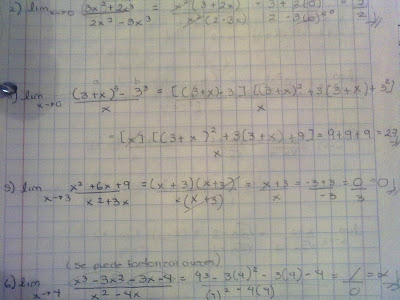 2) lim x→0 (3x² + 2x³)/(2x² - 3x³) = x²(3+2x)/x²(2-3x) = (3+2(0))/(2-3(0)) = 3/2 //
lim x→0 ((3+x)³ - 3³)/x = [(3+x)-3] [(3+x)² + 3(3+x) + 3²]/x
= [x] [(3+x)² + 3(3+x) + 9]/x = 9+9+9 = 27 //
5) lim x→-3 (x² + 6x + 9)/(x² + 3x) = (x+3)(x+3)/x(x+3) = (x+3)/x = (-3+3)/-3 = 0/3 = 0 //
(Se puede
6) lim x→4 (x³ - 3x² - 3x - 4)/(x² - 4x) = (4³ - 3(4)² - 3(4) - 4)/((4)² - 4(4)) = /0 = ∝ //